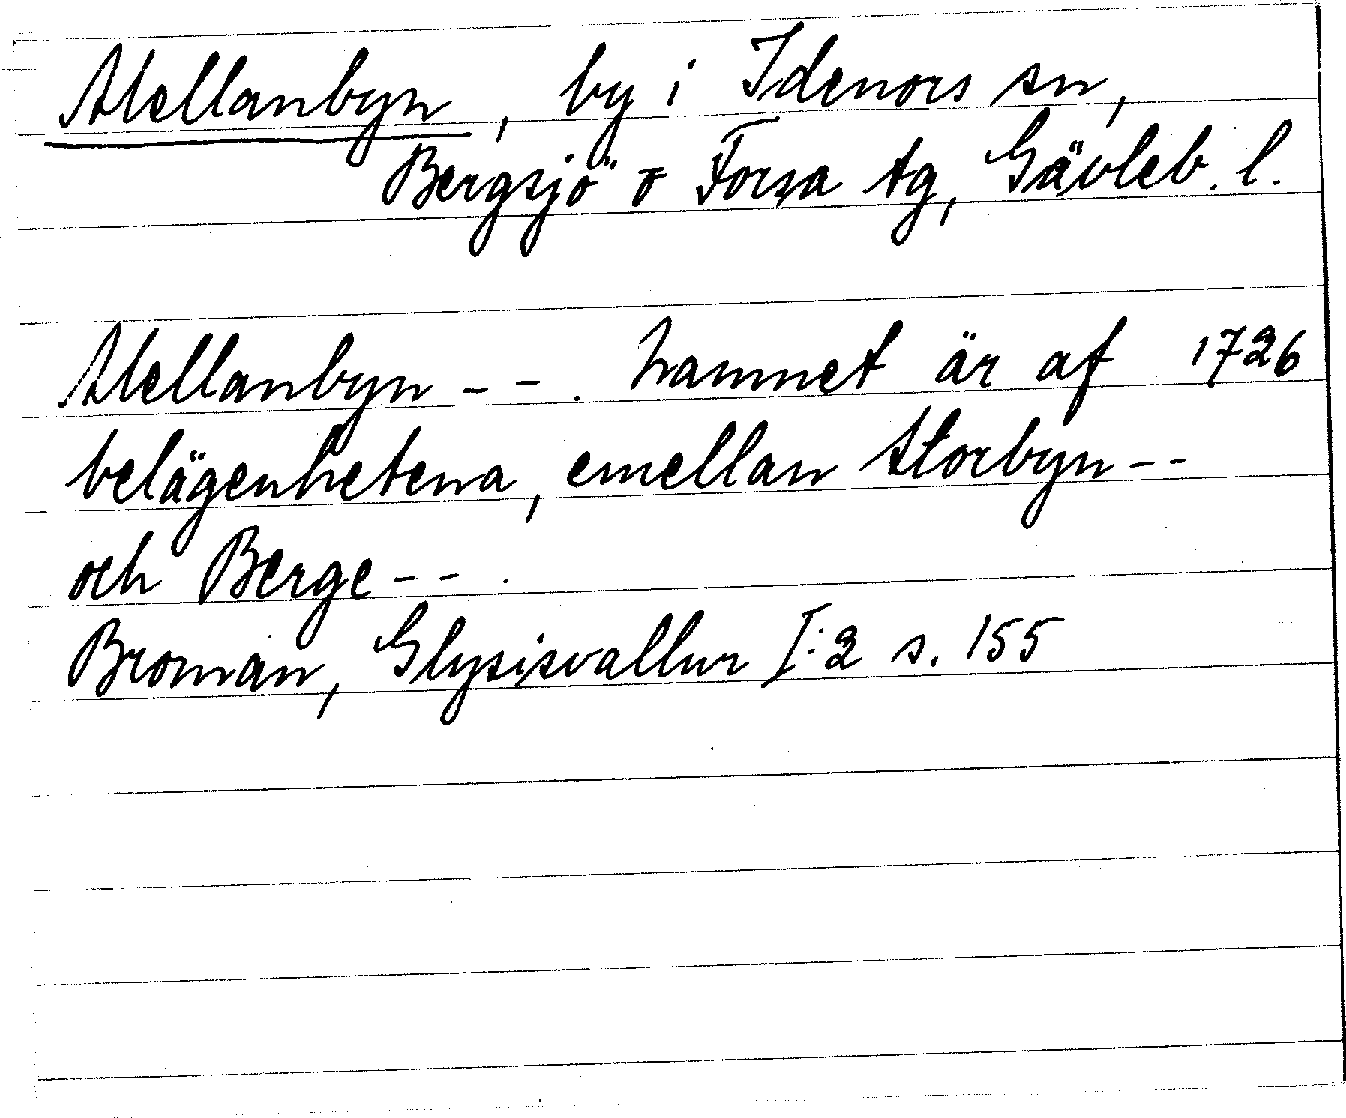 Mellanbyn, by i Idenors sn,
Bergsjö o Forsa tg, Gävleb. l.
Mellanbyn - - . hamnet är af 1726
belägenhetena, emellan Storbyn - -
och Berge - - .
Broman, Glysisvallur I:2 s. 155